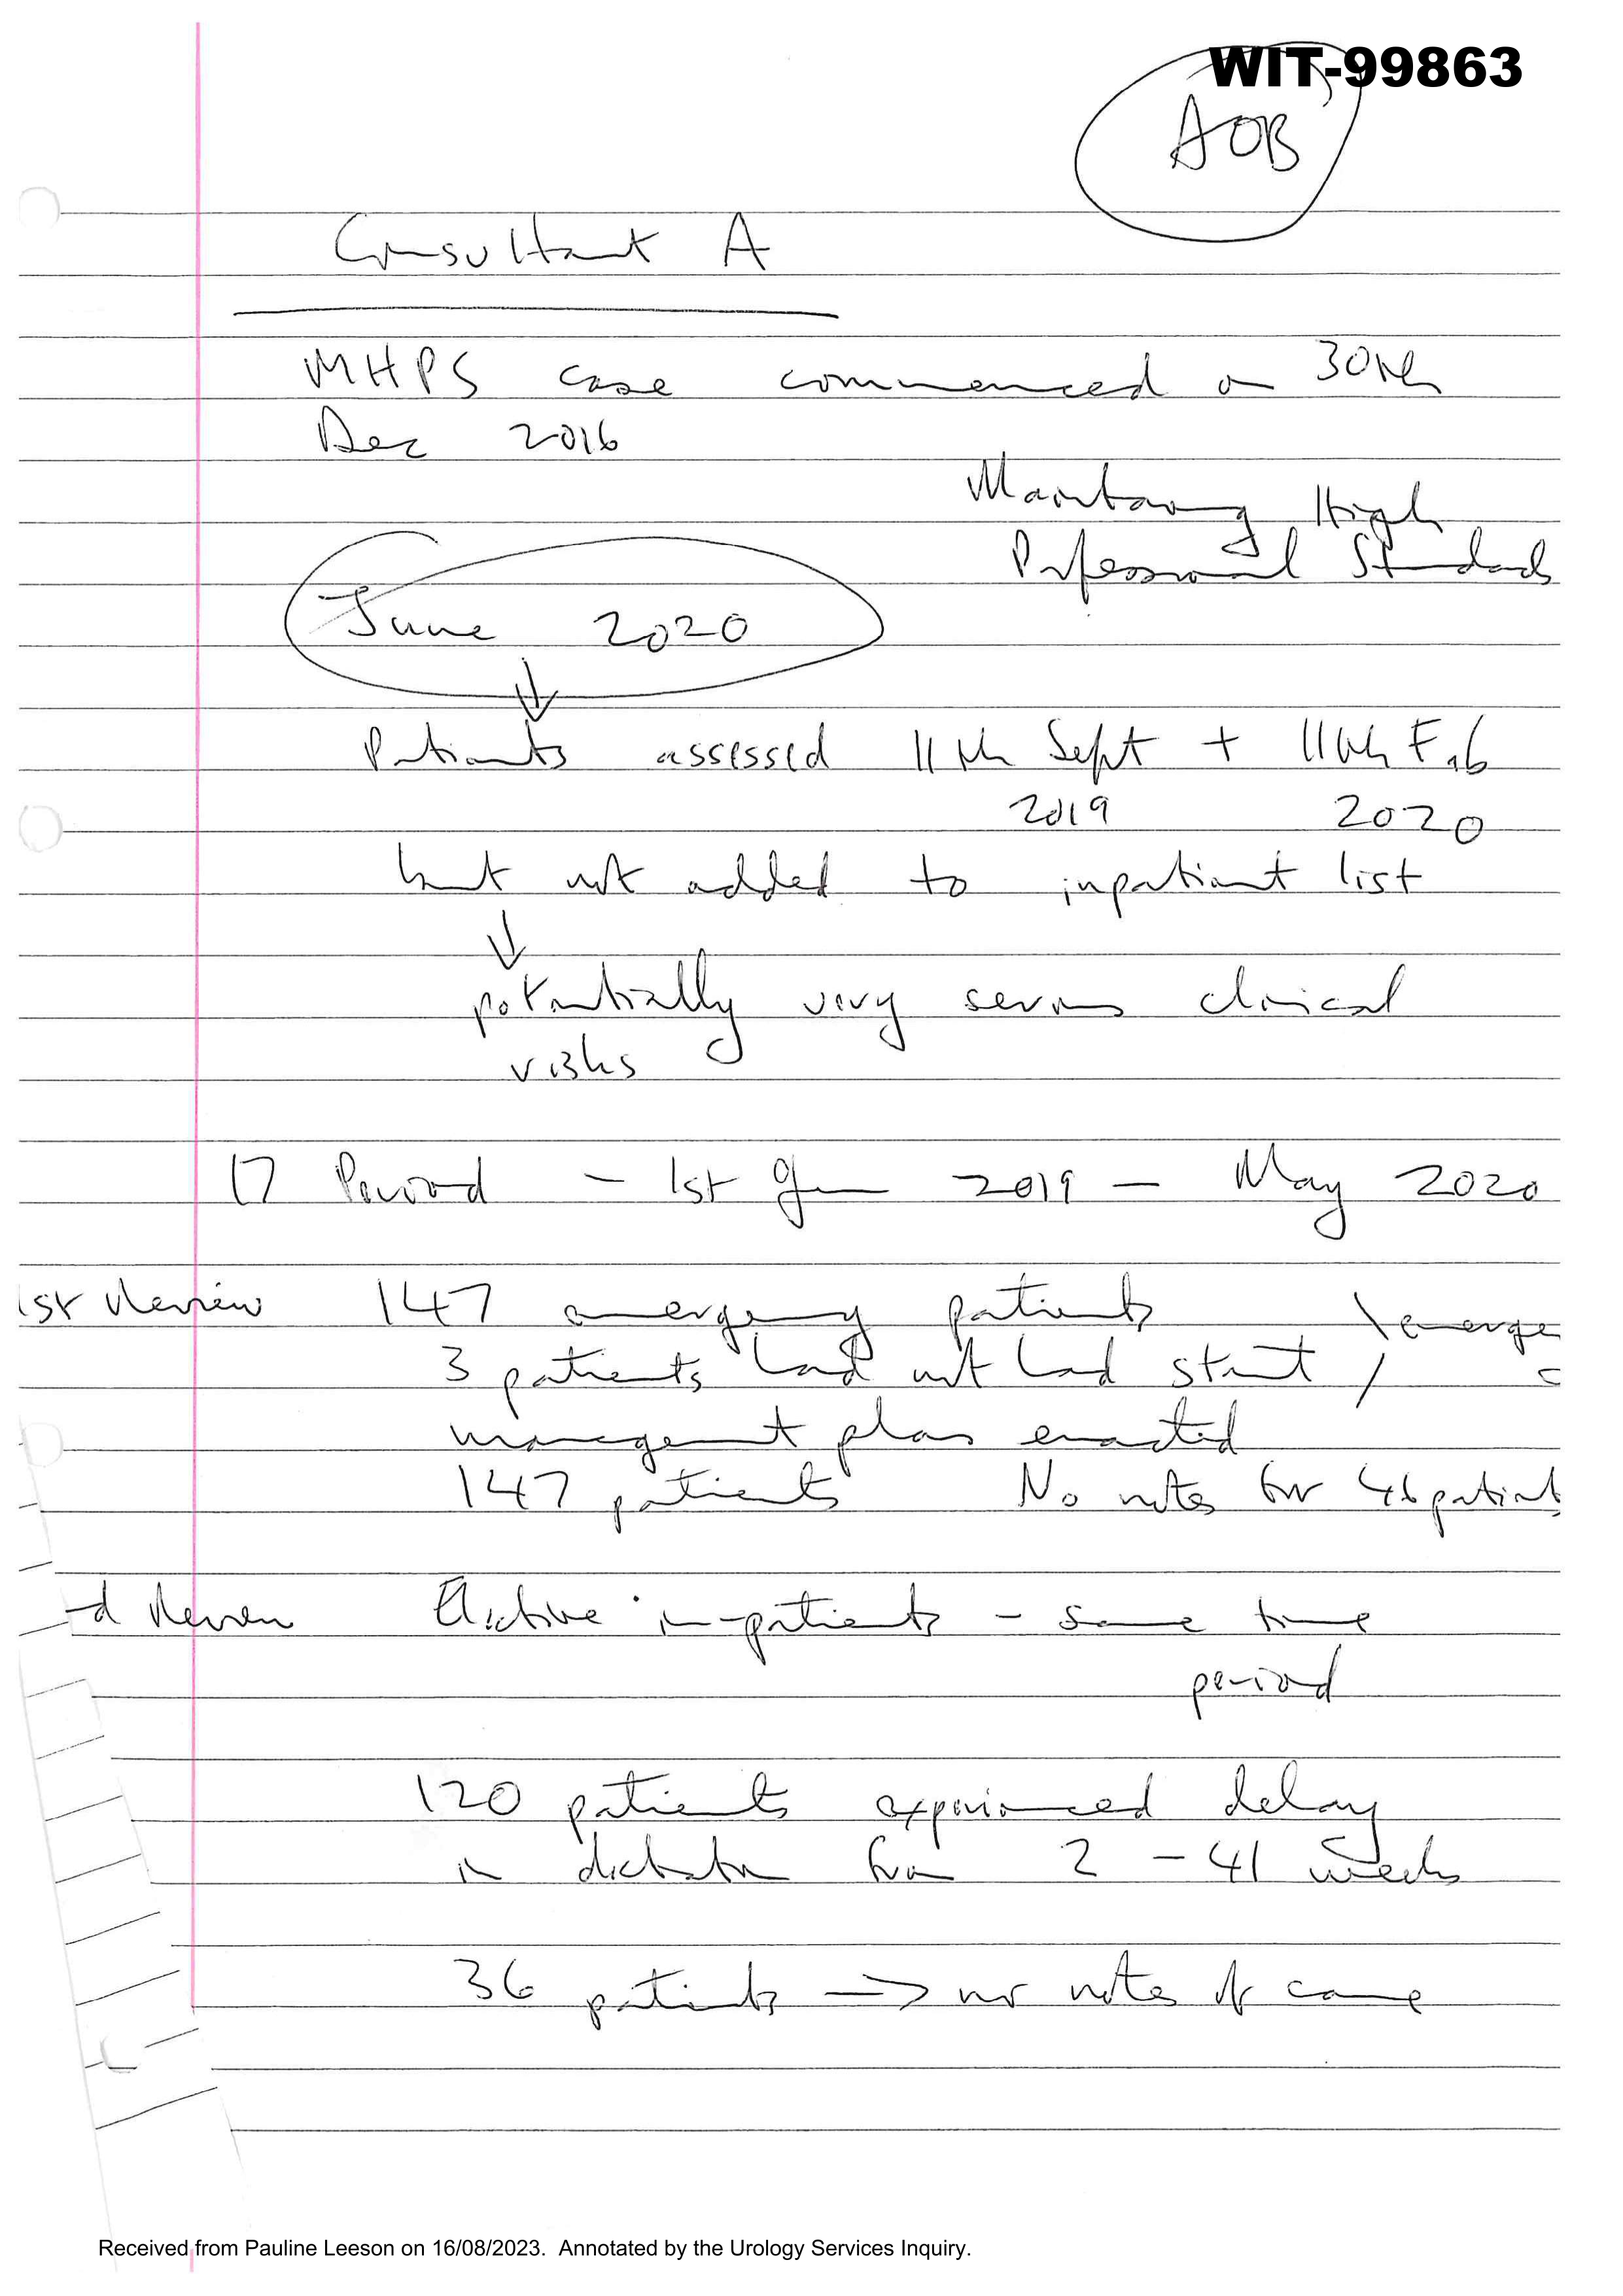 WIT-99863
AOB
Consultant A
MHPS case commenced on 30th
Dec 2016
Maintaining High
Professional Standards
June 2020
Patients assessed 11th Sept + 11th Feb
2019 2020
but not added to inpatient list
potentially very serious clinical
risks
17 Period - 1st Jan 2019 - May 2020
1st Review 147 emergency patients
3 patients had not had stent
management plan enacted
147 patients No notes for 46 patients
Review Elective in-patients - same time
period
120 patients experienced delay
in dictation from 2 - 41 weeks
36 patients => no notes of care
Received from Pauline Leeson on 16/08/2023. Annotated by the Urology Services Inquiry.